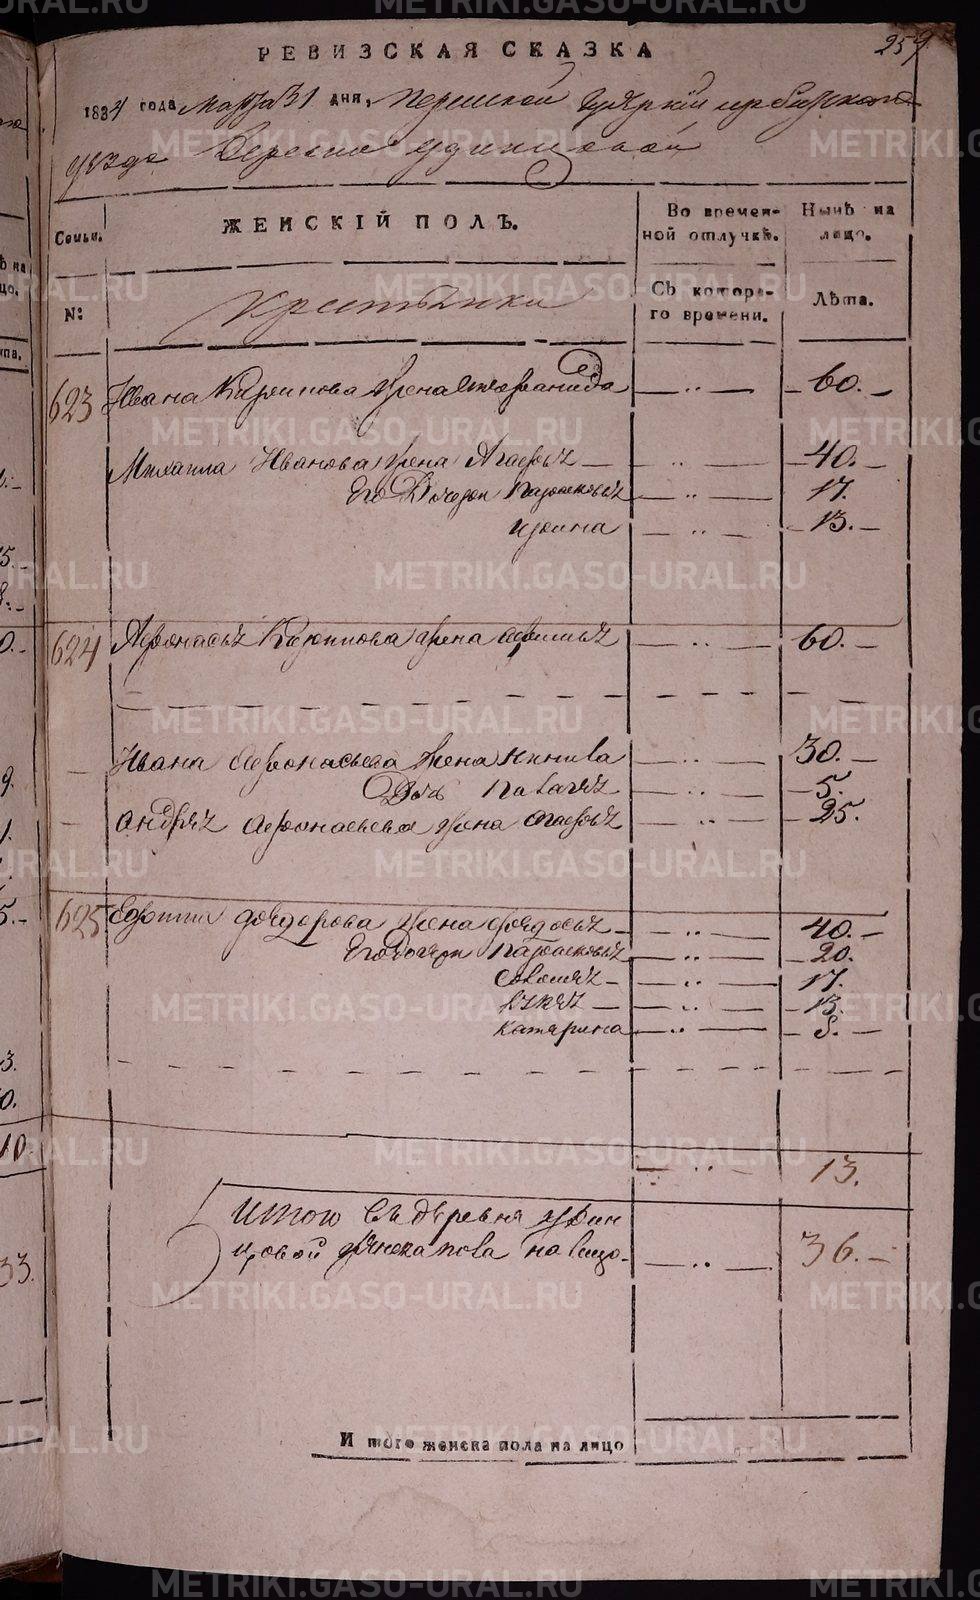 257
РЕВИЗСКАЯ СКАЗКА
1834 года марта 31 дня, Пермской Губернии ирбитского
уезда деревни удинцовой
Семьи.
ЖЕНСКІЙ ПОЛЪ.
Во времен-
ной отлучкѣ.
Нынѣ на
лицо.
№:
Крестьянки
Съ которо-
го времени.
Лѣта.
623 Ивана Карпинова жена Степанида — 60. —
Михаила Иванова жена Агафья — 40. —
Его Дочери Парасковья 17.
ирина — 13. —
624 Афонасья Карпинова жена афимья 60. —
Ивана Афонасьева жена 30. —
Дочь Пелагея 5.
андрея афонасьева жена агафья 25.
625 жена федосья 40. —
Его дочери Парасковья 20.
Соломея 17.
13.
Катерина 8. —
13.
Итого въ деревня удин
цовой женска пола на лицо. 36. —
Итого женска пола на лицо
METRIKI.GASO-URAL.RU